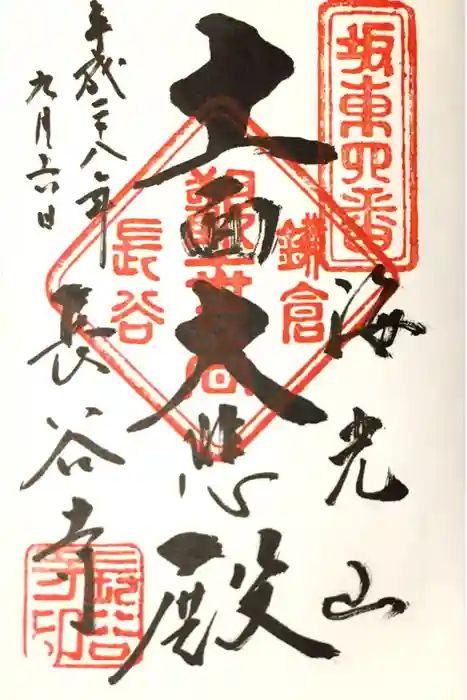 坂東四番
海光山
鎌倉
十一面大悲殿
長谷
平成二十八年
九月十六日
長谷寺
長谷寺印